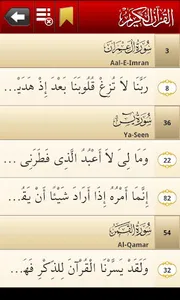 القرآن الكريم
3
سُورَةُ آلِ عِمْرَان
Aal-E-Imran
رَبَّنَا لَا تُزِغْ قُلُوبَنَا بَعْدَ إِذْ هَدَيْ...
8
سُورَةُ يس
36
Ya-Seen
وَمَا لِيَ لَا أَعْبُدُ الَّذِي فَطَرَنِي ...
22
إِنَّمَا أَمْرُهُ إِذَا أَرَادَ شَيْئًا أَنْ يَقُ...
82
سُورَةُ القَمَر
54
Al-Qamar
وَلَقَدْ يَسَّرْنَا الْقُرْآنَ لِلذِّكْرِ فَهَ...
32